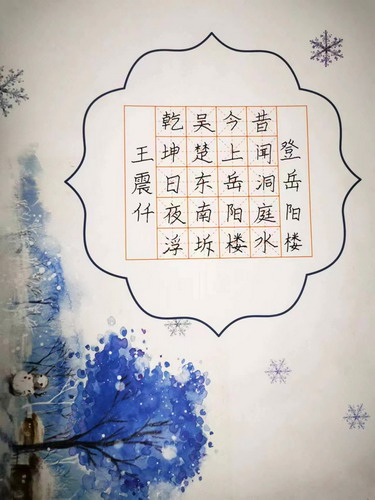 登岳阳楼
昔闻洞庭水
今上岳阳楼
吴楚东南坼
乾坤日夜浮
王震仟